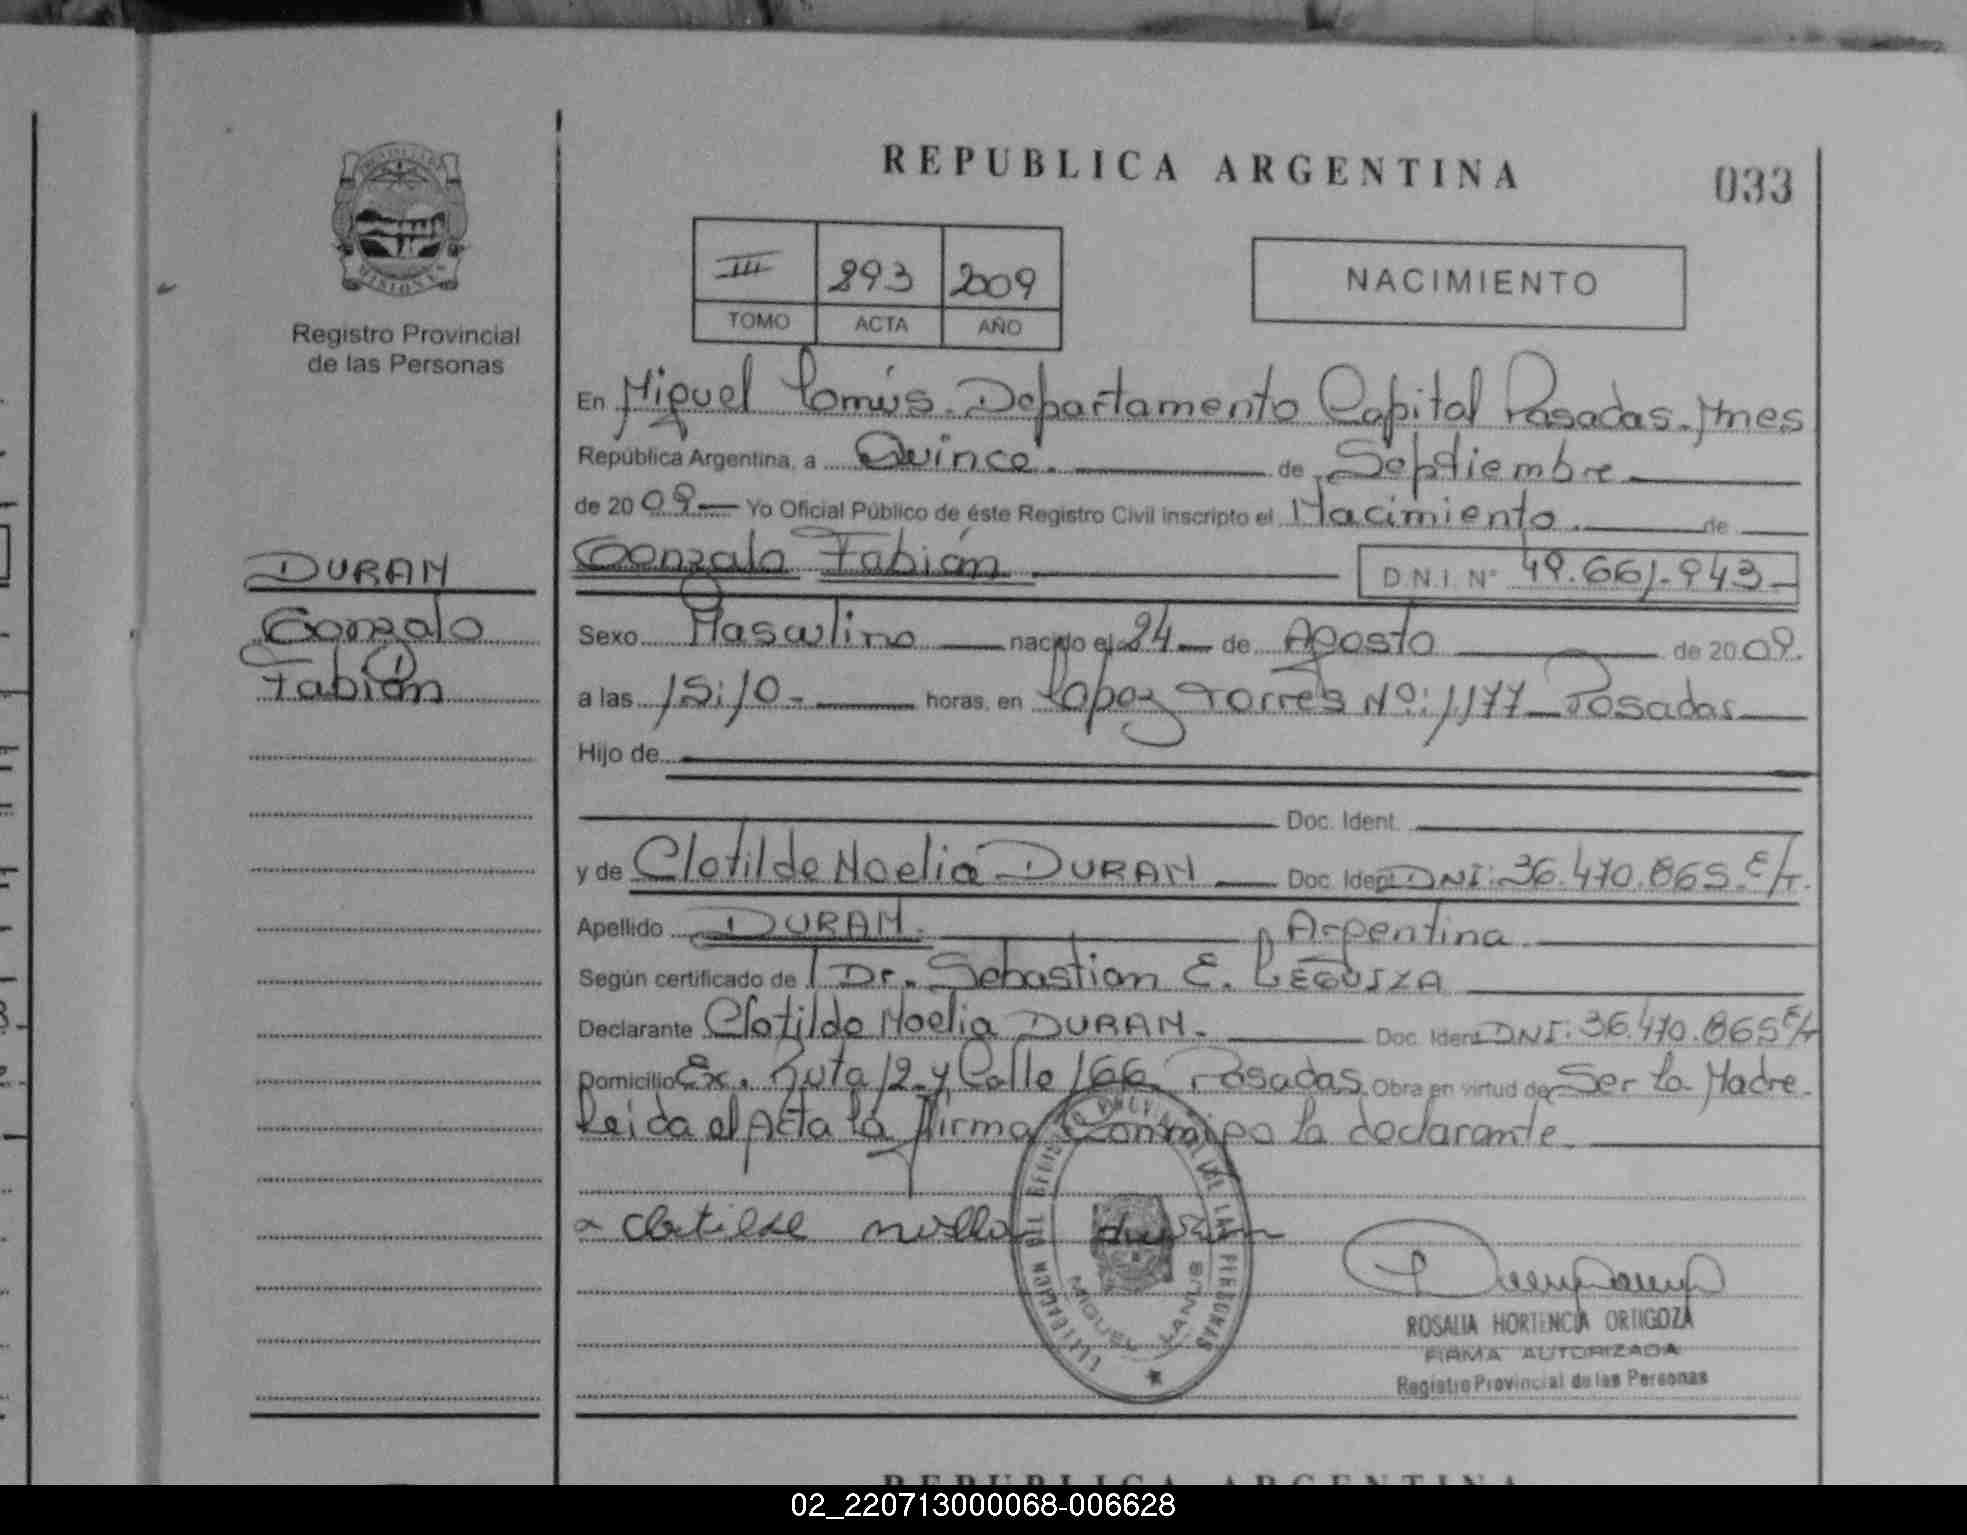 REPUBLICA ARGENTINA
033
III 293 2009
TOMO ACTA AÑO
NACIMIENTO
Registro Provincial
de las Personas
DURAN
Gonzalo
Fabián
En Miguel Lanús. Departamento Capital Posadas. Mnes
República Argentina, a Quince. de Septiembre
de 20 09 Yo Oficial Público de éste Registro Civil inscripto el Nacimiento. de
Gonzalo Fabián D.N.I. N°
Sexo Masculino nacido el 24 de Agosto de 20 09.
a las 15:10 horas, en López Torres Nº: 1177 Posadas
Hijo de
Doc. Ident.
y de Clotilde Noelia DURAN Doc. Ident DNI: 36.470.865. E/T.
Apellido DURAN. Argentina
Según certificado de Dr. Sebastian E. LEGUIZA
Declarante Clotilde Noelia DURAN. Doc. Ident DNI: 36.470.865 E/T
Domicilio Ex. Ruta 12 y Calle 166 Posadas. Obra en virtud de Ser la Madre.
Leida el Acta la firma Conmigo la declarante.
clotilde duran
MIGUEL LANUS
ROSALIA HORTENCIA ORTIGOZA
FIRMA AUTORIZADA
Registro Provincial de las Personas
REPUBLICA ARGENTINA
02_220713000068-006628